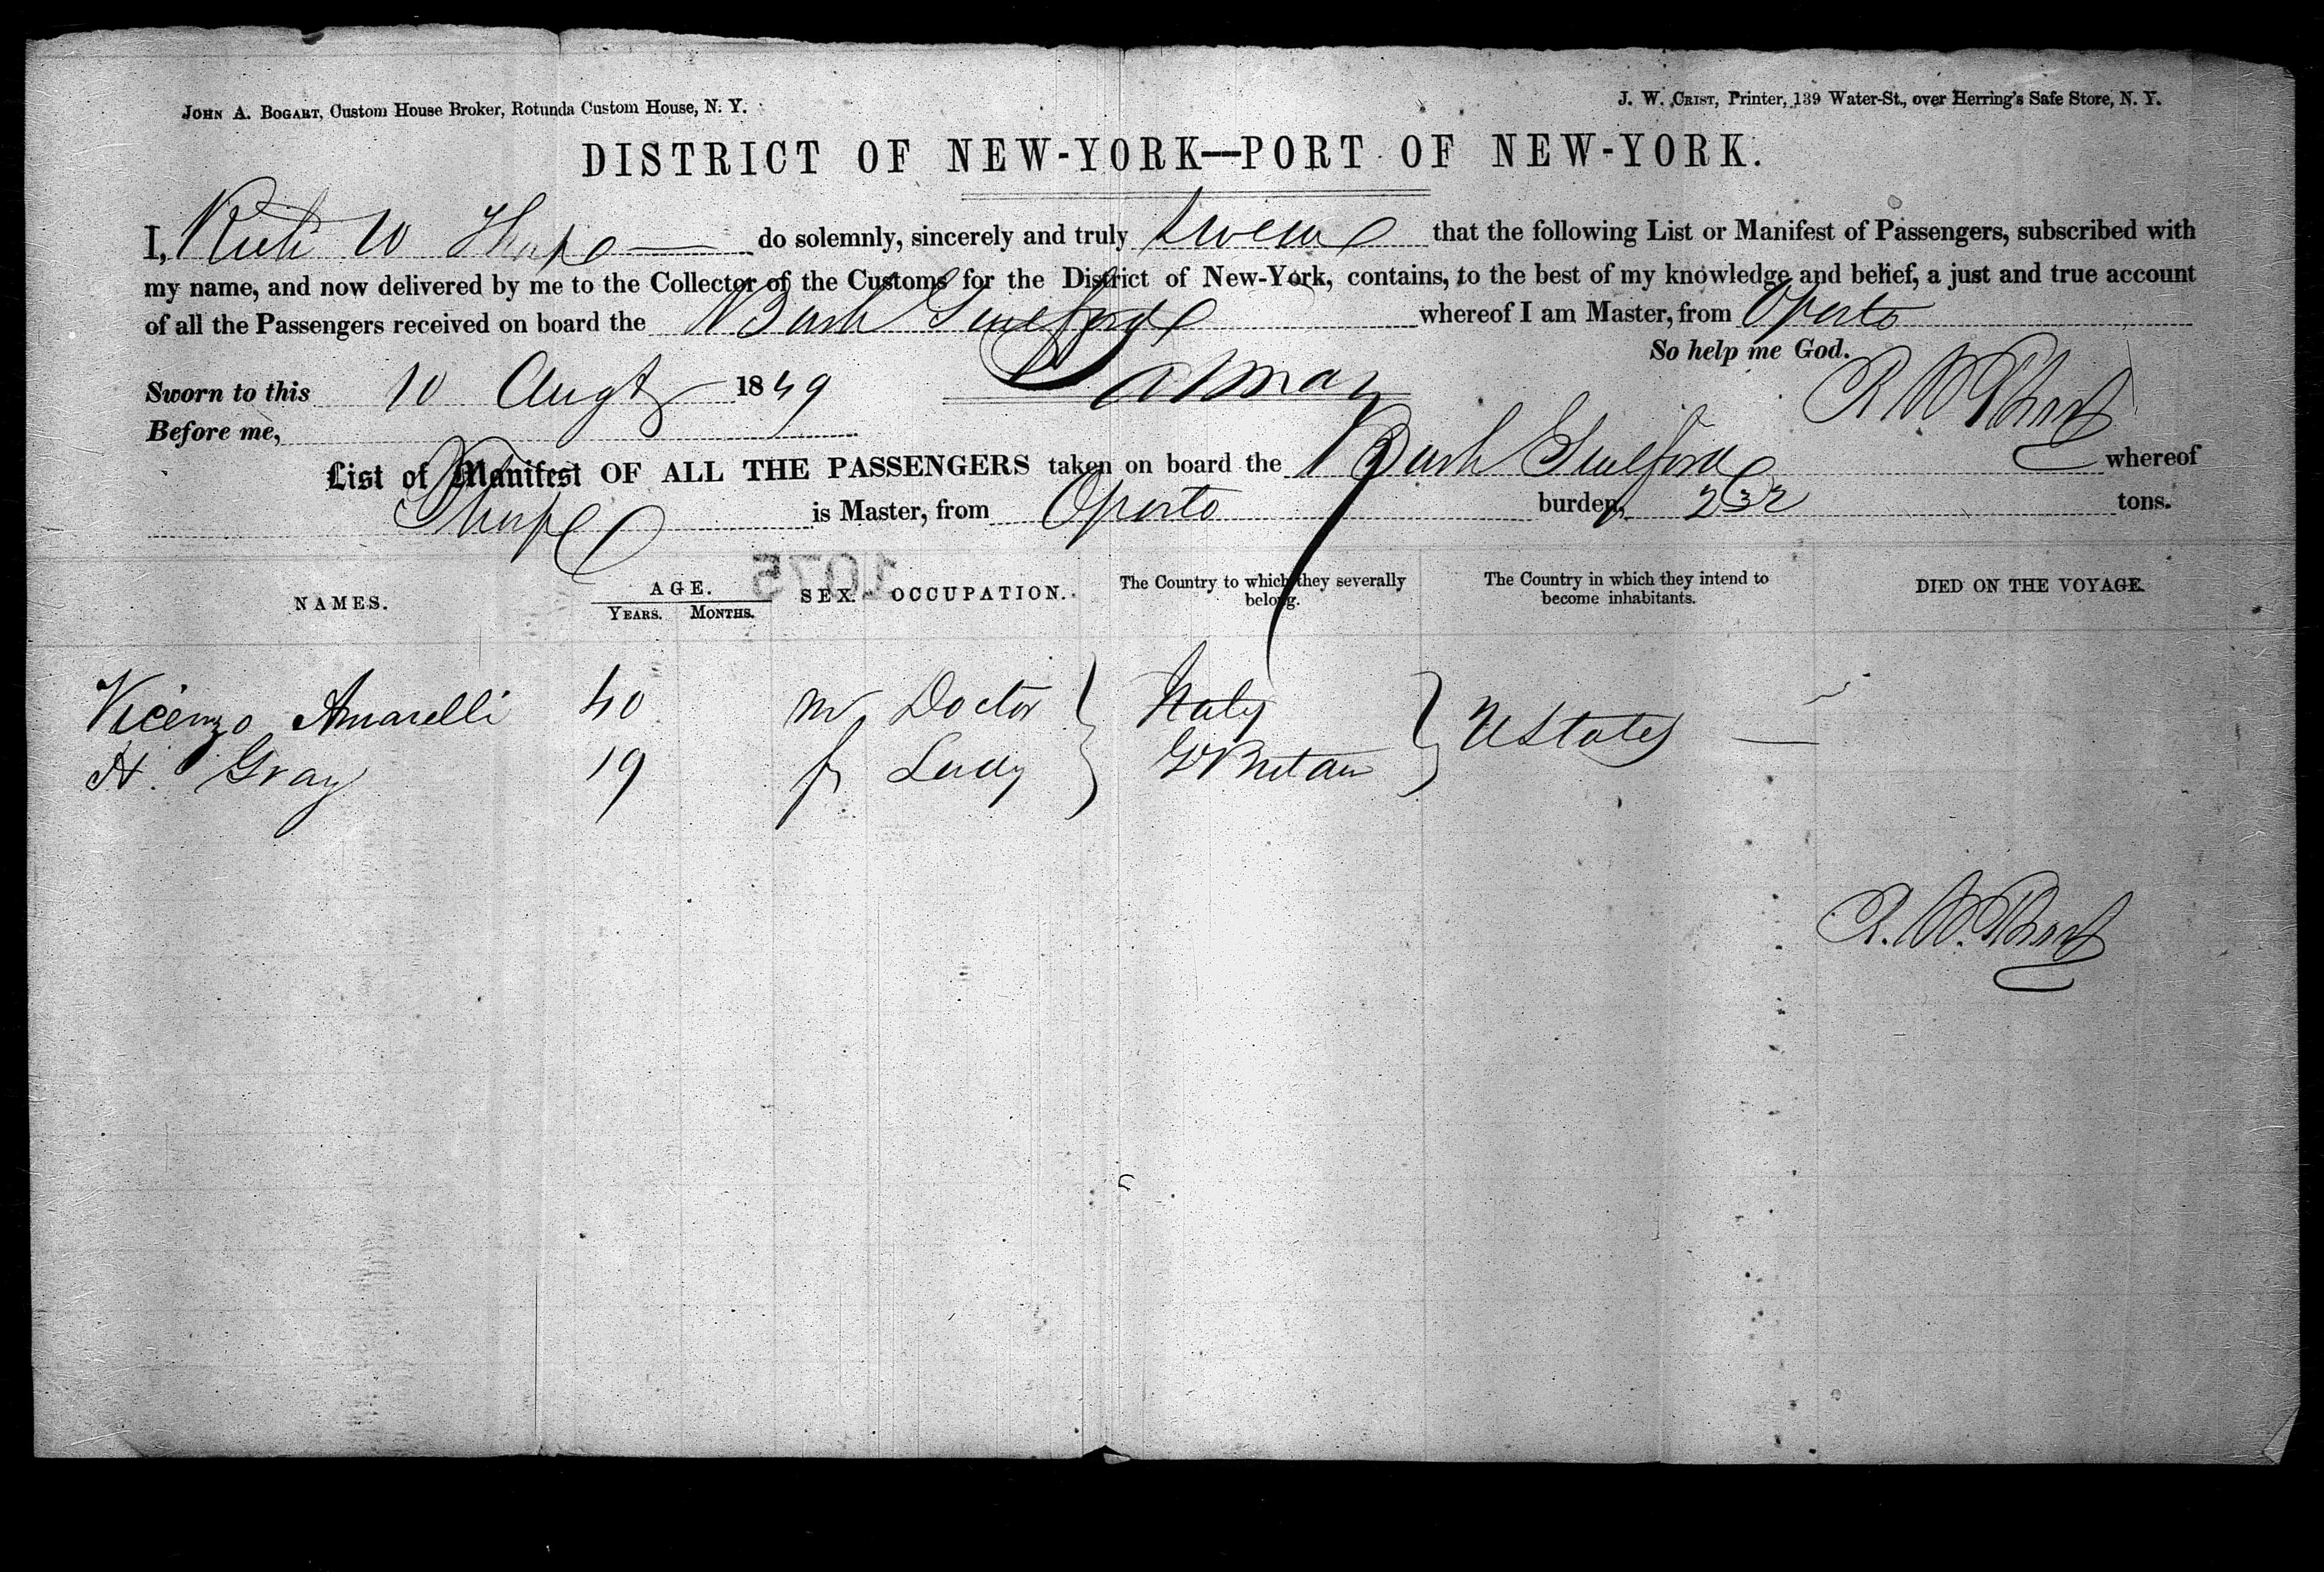 JOHN A. BOGART, Custom House Broker, Rotunda Custom House, N. Y.
J. W. CRIST, Printer, 139 Water-St., over Herring's Safe Store, N. Y.
DISTRICT OF NEW-YORK—PORT OF NEW-YORK.
I, W Tharp do solemnly, sincerely and truly swear that the following List or Manifest of Passengers, subscribed with
my name, and now delivered by me to the Collector of the Customs for the District of New-York, contains, to the best of my knowledge and belief, a just and true account
of all the Passengers received on board the Bark Guilford whereof I am Master, from Oporto
So help me God.
Sworn to this 10 Augt 1849
R W Tharp
Before me,
List of Manifest OF ALL THE PASSENGERS taken on board the Bark Guilford whereof
Tharp is Master, from Oporto burden, 232 tons.
1075
NAMES. AGE. SEX. OCCUPATION. The Country to which they severally belong. The Country in which they intend to become inhabitants. DIED ON THE VOYAGE.
YEARS. MONTHS.
Vicenzo Amarelli 40 m Doctor Italy
UStates —
H. Gray 19 f Lady Gt Britain
R. W. Tharp